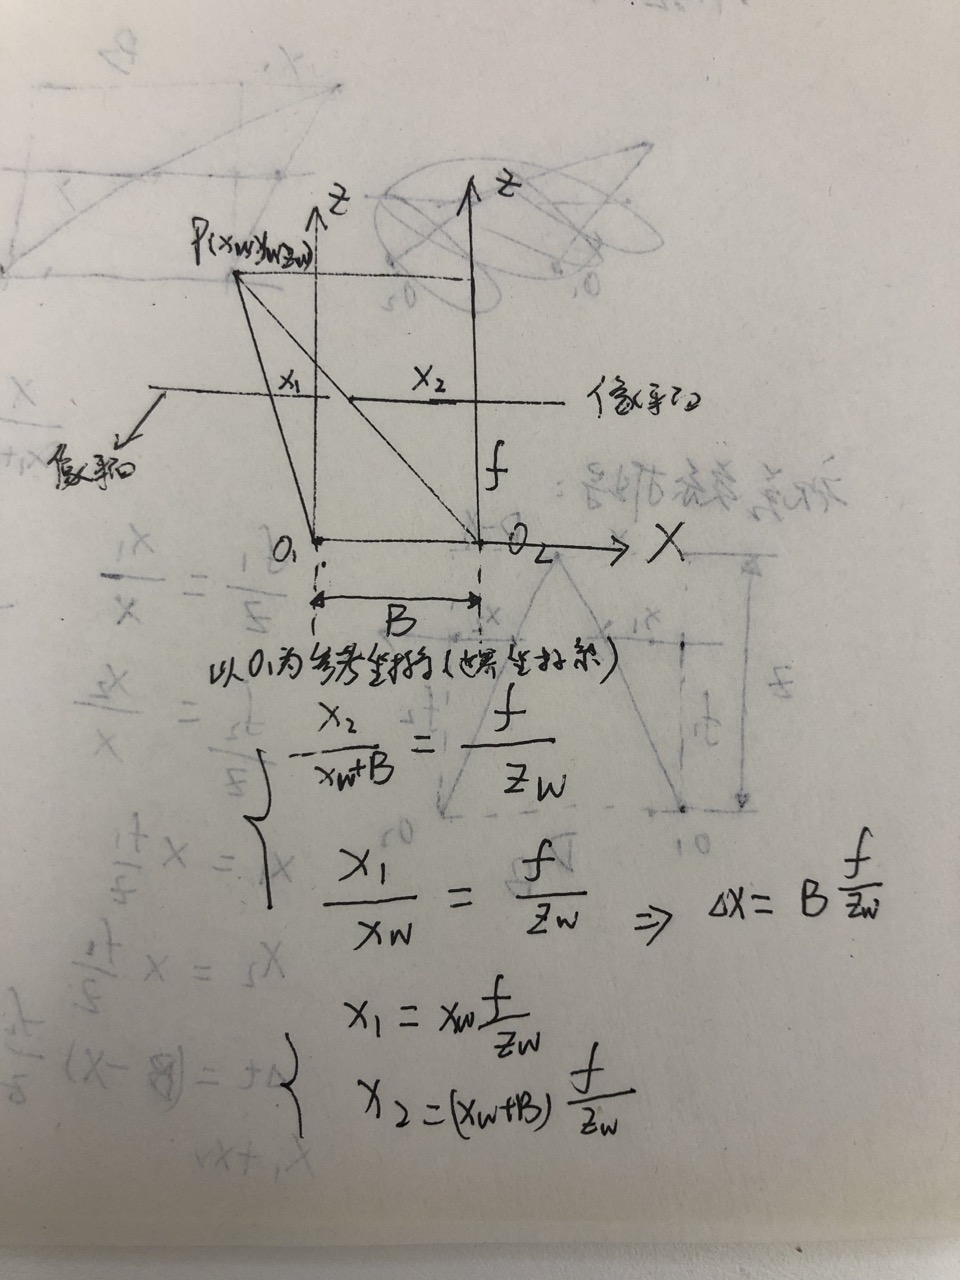 Z
Z
P(xw yw zw)
x₁
x₂
像平面
像平面
f
O₁
O₂
X
B
以O₁为参考坐标(世界坐标系)
x₂/(xw+B) = f/zw
x₁/xw = f/zw ⇒ Δx = B f/zw
x₁ = xw f/zw
x₂ = (xw+B) f/zw